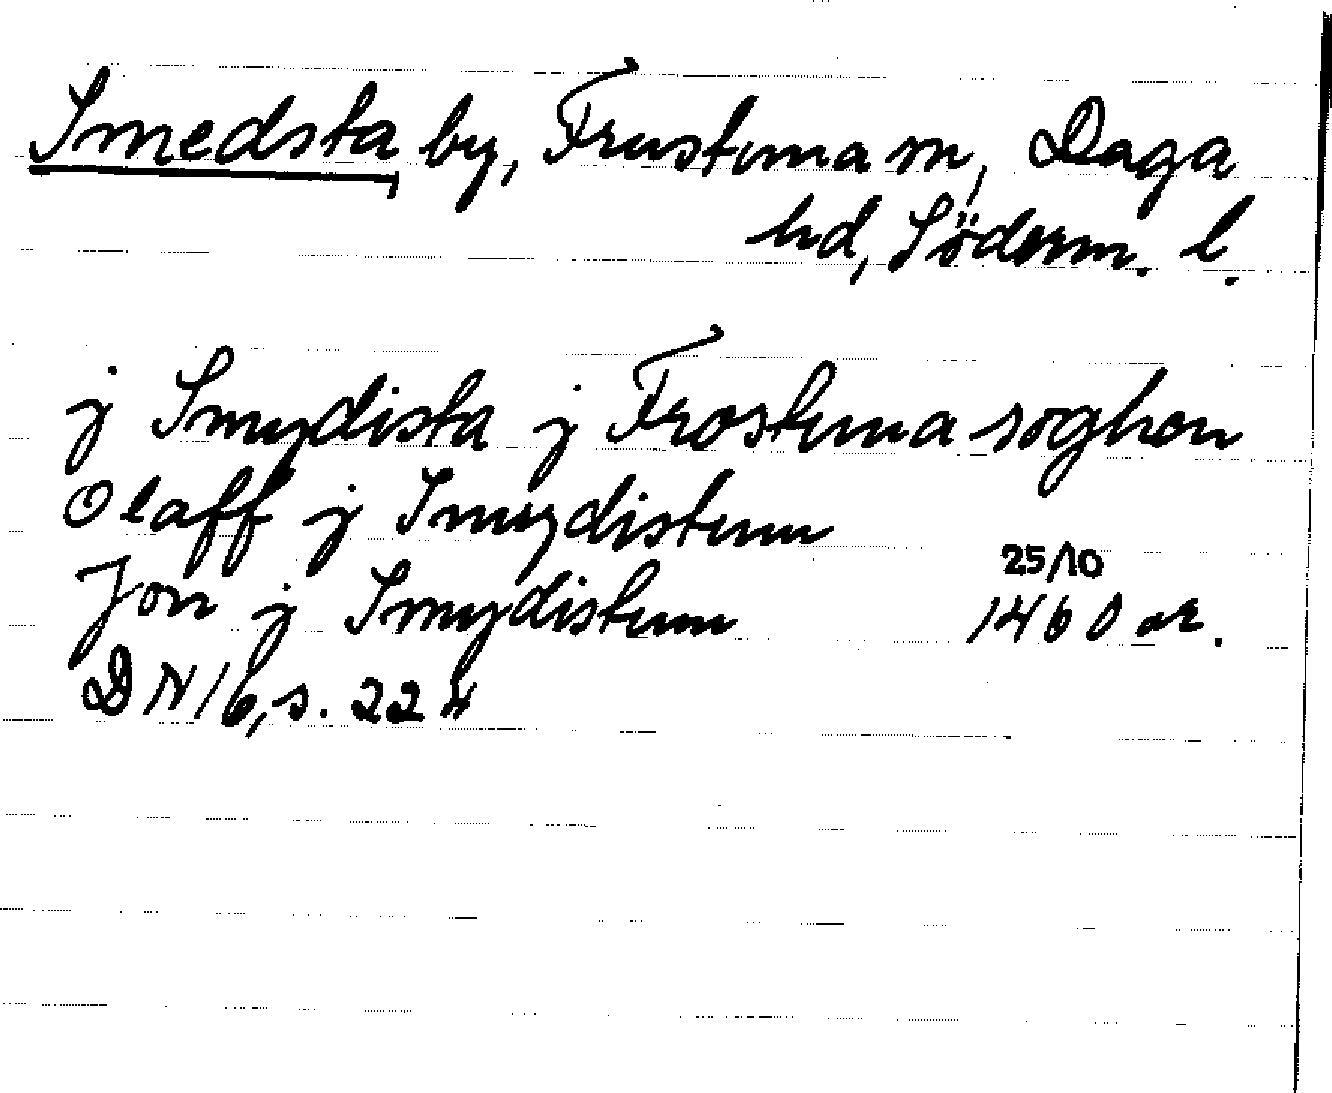 Smedsta, by, Frustuna sn, Daga
hd, Söderm. l.
j Smydista j Frostuna soghen
Olaff j Smydistum
Jon j Smydistum 25/10 1460 or.
DN 16, s. 224